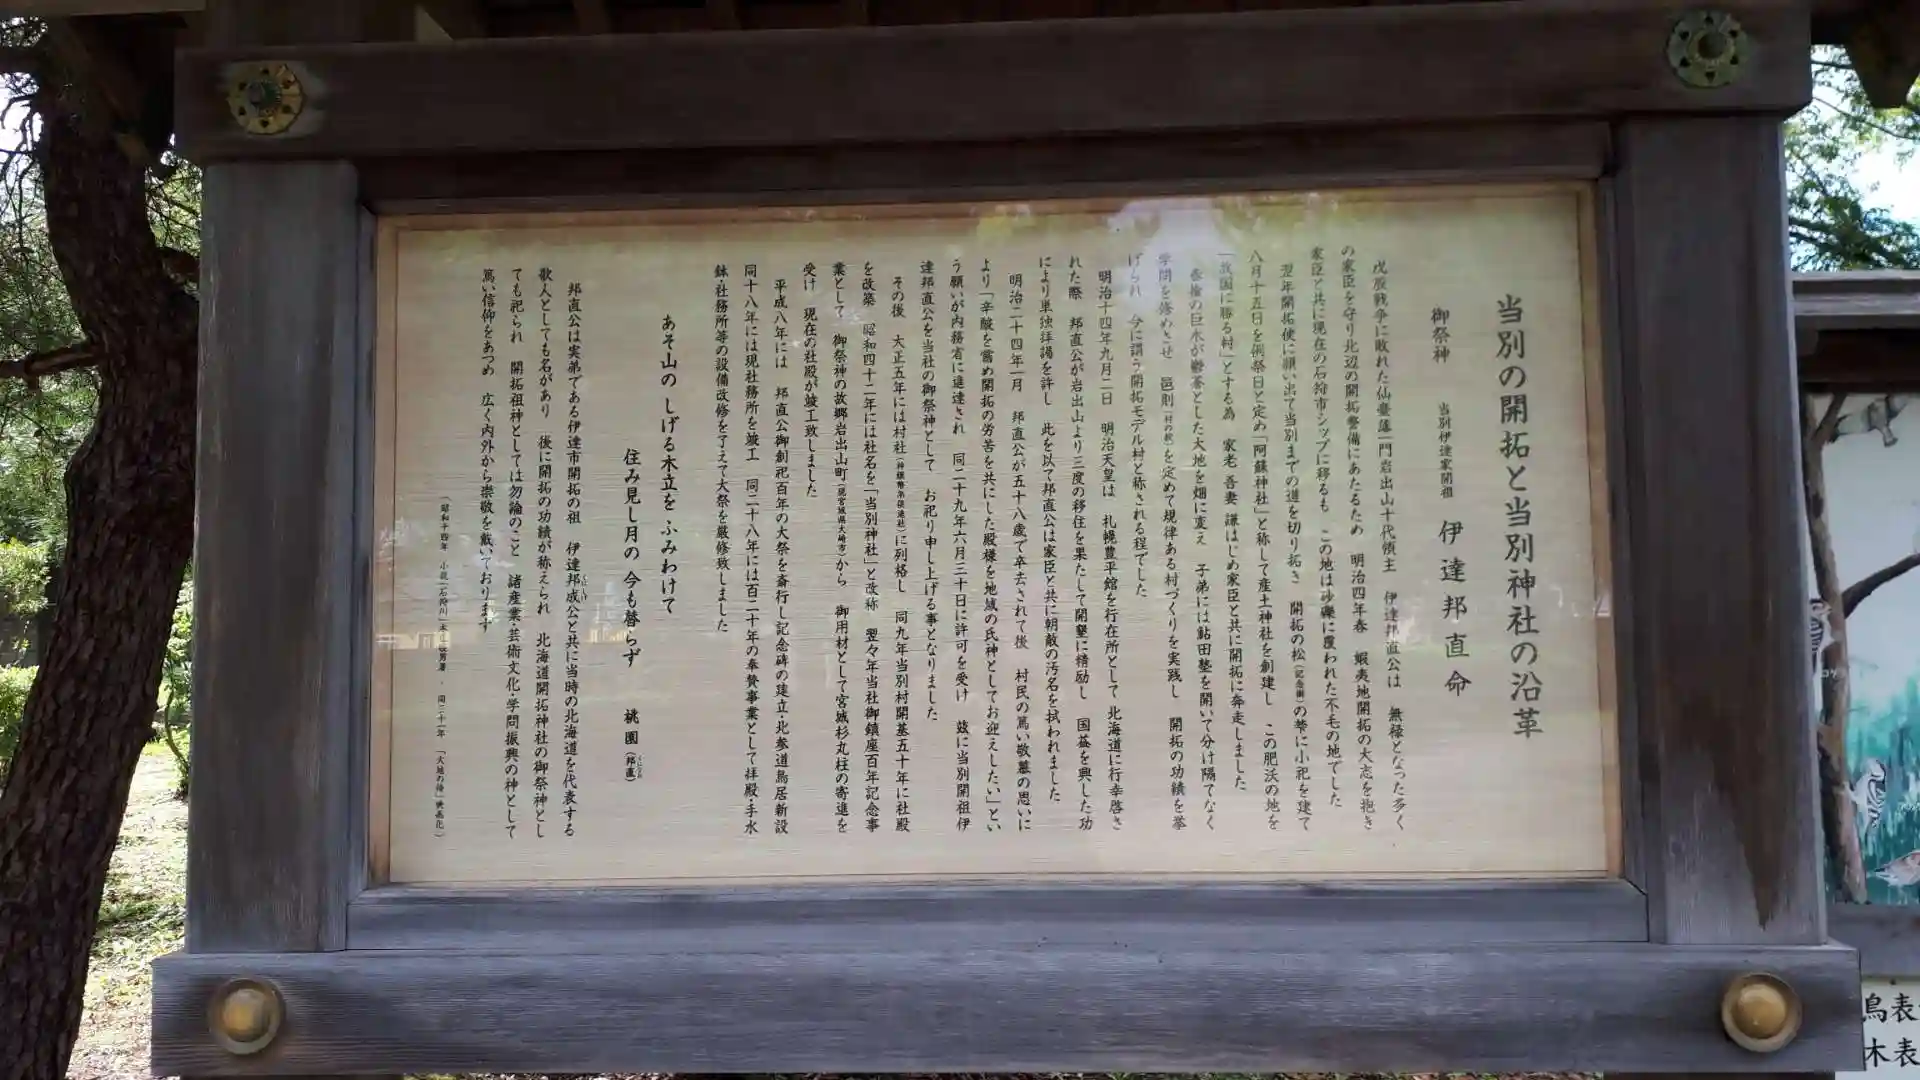 当別の開拓と当別神社の沿革
御祭神 当別伊達家開祖 伊達邦直命
戊辰戦争に敗れた仙臺藩一門岩出山十代領主 伊達邦直公は 無禄となった多く
の家臣を守り北辺の開拓警備にあたるため 明治四年春 蝦夷地開拓の大志を抱き
家臣と共に現在の石狩市シップに移るも この地は砂礫に覆われた不毛の地でした
翌年開拓使に願い出て当別までの道を切り拓き 開拓の松(記念樹)の幹に小祀を建て
八月十五日を例祭日と定め「阿蘇神社」と称して産土神社を創建し この肥沃の地を
「故国に勝る村」とする為 家老 吾妻 謙はじめ家臣と共に開拓に奔走しました
巨木が鬱蒼とした大地を畑に変え 子弟には鮎田塾を開いて分け隔てなく
学問を修めさせ 邑則(村の掟)を定めて規律ある村づくりを実践し 開拓の功績を挙
げられ 今に謂う開拓モデル村と称される程でした
明治十四年九月二日 明治天皇は 札幌豊平館を行在所として 北海道に行幸啓さ
れた際 邦直公が岩出山より三度の移住を果たして開墾に精励し 国益を興した功
により単独拝謁を許し 此を以て邦直公は家臣と共に朝敵の汚名を拭われました
明治二十四年一月 邦直公が五十八歳で卒去されて後 村民の篤い敬慕の思いに
より「辛酸を嘗め開拓の労苦を共にした殿様を地域の氏神としてお迎えしたい」とい
う願いが内務省に進達され 同二十九年六月三十日に許可を受け 玆に当別開祖伊
達邦直公を当社の御祭神として お祀り申し上げる事となりました
その後 大正五年には村社(神饌幣帛供進社)に列格し 同九年当別村開基五十年に社殿
を改築 昭和四十二年には社名を「当別神社」と改称 翌々年当社御鎮座百年記念事
業として 御祭神の故郷岩出山町(現宮城県大崎市)から 御用材として宮城杉丸柱の寄進を
受け 現在の社殿が竣工致しました
平成八年には 邦直公御創祀百年の大祭を斎行し記念碑の建立・北参道鳥居新設
同十八年には現社務所を竣工 同二十八年には百二十年の奉賛事業として拝殿・手水
鉢・社務所等の設備改修を了えて大祭を厳修致しました
あそ山の しげる木立を ふみわけて
住み見し月の 今も替らず 桃園(邦直)
邦直公は実弟である伊達市開拓の祖 伊達邦成公と共に当時の北海道を代表する
歌人としても名があり 後に開拓の功績が称えられ 北海道開拓神社の御祭神とし
ても祀られ 開拓祖神としては勿論のこと 諸産業・芸術文化・学問振興の神として
篤い信仰をあつめ 広く内外から崇敬を戴いております
(昭和十四年 小説「石狩川」本庄陸男著 ・ 同三十一年 「大地の侍」映画化)
鳥表
木表